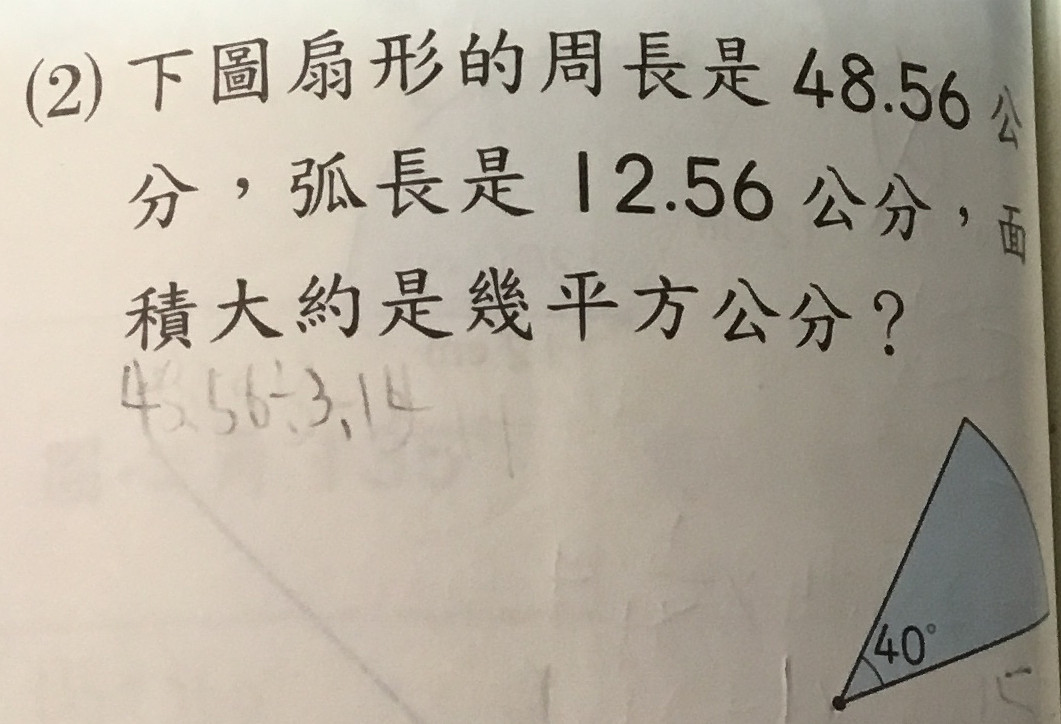 (2) 下圖扇形的周長是 48.56 公
分，弧長是 12.56 公分，面
積大約是幾平方公分？
48.56÷3.14
40°